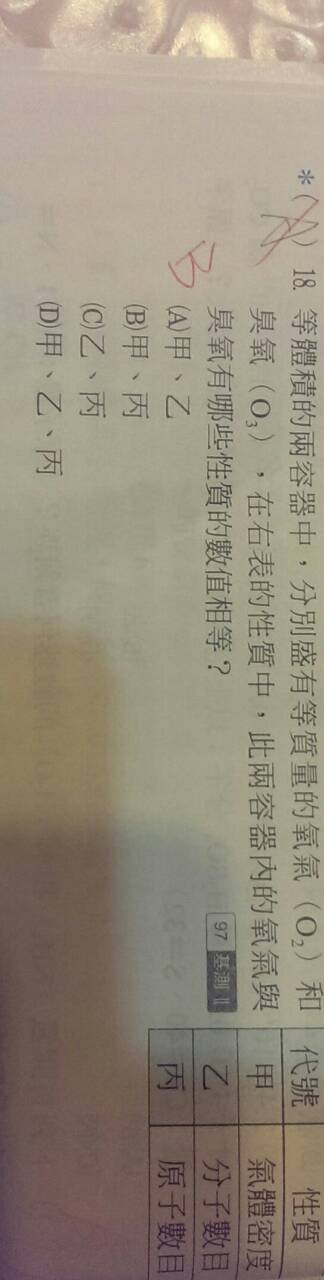 *( ) 18. 等體積的兩容器中，分別盛有等質量的氧氣（O₂）和
臭氧（O₃），在右表的性質中，此兩容器內的氧氣與
臭氧有哪些性質的數值相等？
97 基測 II
(A)甲、乙
(B)甲、丙
(C)乙、丙
(D)甲、乙、丙
B
代號 性質
甲 氣體密度
乙 分子數目
丙 原子數目